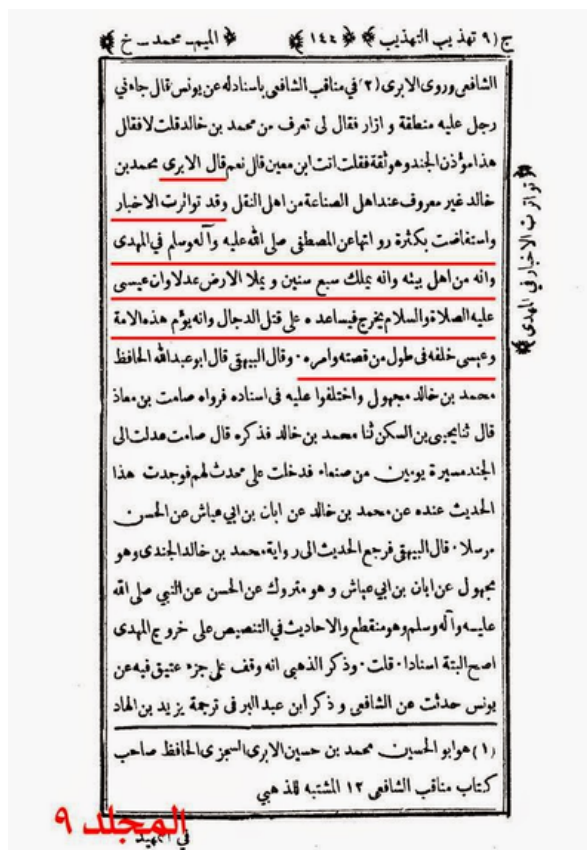 ج (٩ تهذيب التهذيب ﴾ ﴿ ١٤٤ ﴾ ﴿ الميم ـ محمد ـ خ ﴾
الشافعى وروى الابرى (٢) فى مناقب الشافعى باسناد له عن يونس قال جاءنى
رجل عليه منطقة و ازار فقال لى تعرف من محمد بن خالد قلت لا فقال
هذا مؤذن الجند وهو ثقة فقلت انت ابن معين قال نعم قال الابرى محمد بن
خالد غير معروف عند اهل الصناعة من اهل النقل وقد تواترت الاخبار
واستفاضت بكثرة رواتها عن المصطفى صلى الله عليه وآله وسلم فى المهدى
وانه من اهل بيته وانه يملك سبع سنين و يملا الارض عدلا وان عيسى
عليه الصلاة والسلام يخرج فيساعده على قتل الدجال وانه يؤم هذه الامة
وعيسى خلفه فى طول من قصته وامره . وقال البيهقى قال ابو عبد الله الحافظ
محمد بن خالد مجهول واختلفوا عليه فى اسناده فرواه صامت بن معاذ
قال ثنا يحيى بن السكن ثنا محمد بن خالد فذكره قال صامت عدلت الى
الجند مسيرة يومين من صنعاء فدخلت على محدث لهم فوجدت هذا
الحديث عنده عن محمد بن خالد عن ابان بن ابي عياش عن الحسن
مرسلا . قال البيهقى فرجع الحديث الى رواية محمد بن خالد الجندى وهو
مجهول عن ابان بن ابي عياش و هو متروك عن الحسن عن النبي صلى الله
عليه وآله وسلم وهو منقطع والاحاديث فى التنصيص على خروج المهدى
اصح البتة اسنادا . قلت . وذكر الذهبى انه وقف على جزء عتيق فيه عن
يونس حدثت عن الشافعى و ذكر ابن عبد البر فى ترجمة يزيد بن الهاد
﴿ تواترت الاخبار فى المهدى ﴾
(١) هو ابو الحسين محمد بن حسين الابرى السجزى الحافظ صاحب
كتاب مناقب الشافعى ١٢ المشتبه للذهبي
المجلد ٩